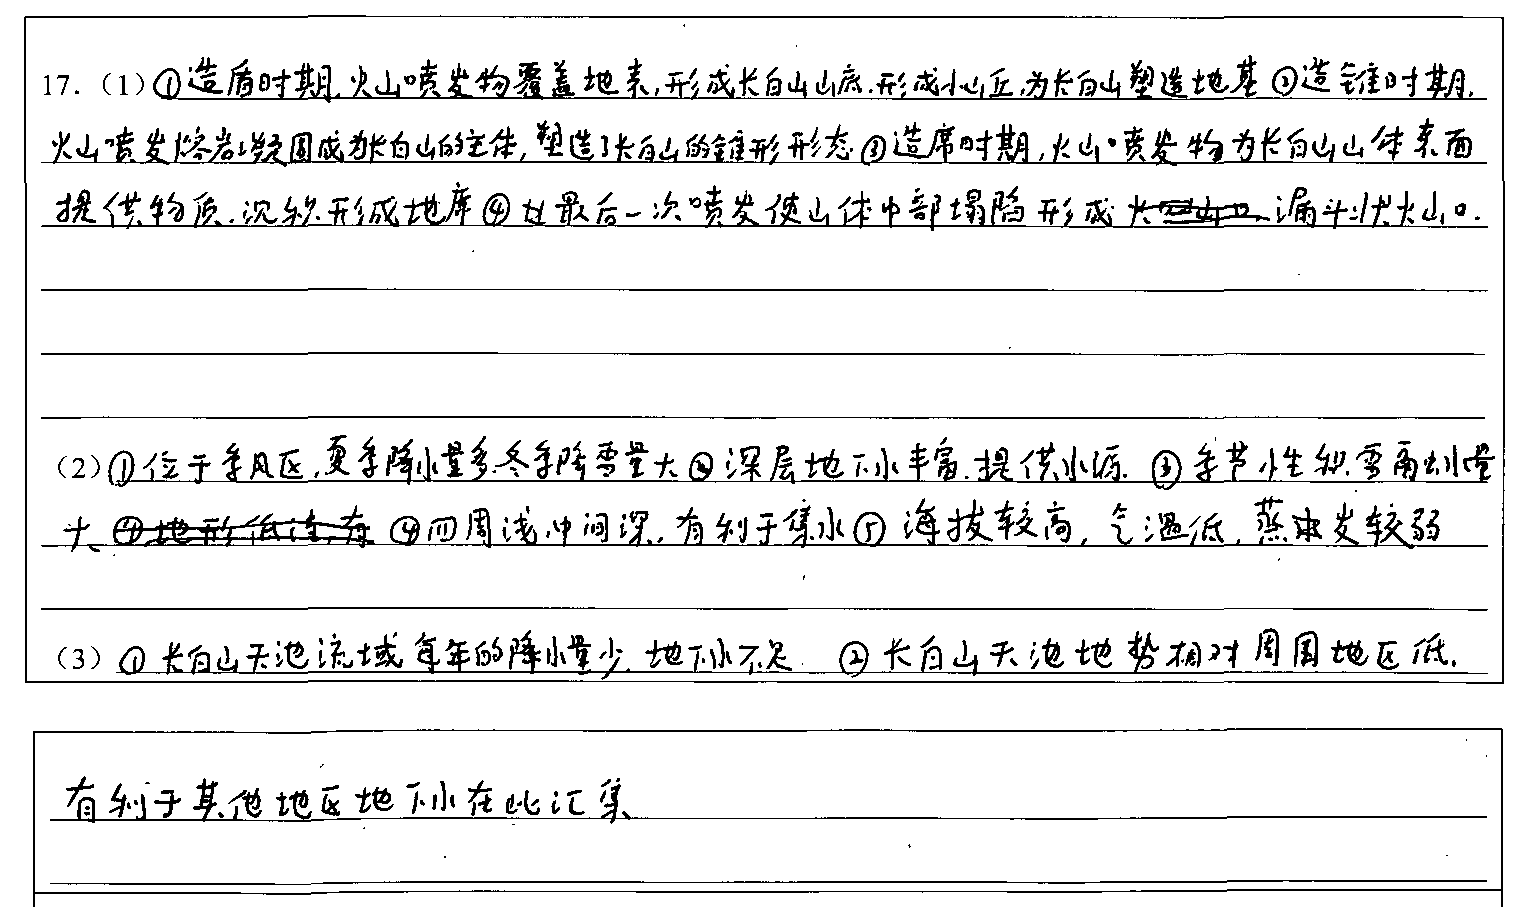 17.（1）①造盾时期，火山喷发物覆盖地表，形成长白山山底，形成小山丘，为长白山塑造地基②造锥时期，
火山喷发熔岩凝固成为长白山的主体，塑造了长白山的锥形形态③造席时期，火山喷发物为长白山山体表面
提供物质，沉积形成地席④在最后一次喷发使山体中部塌陷形成漏斗状火山口.
（2）①位于季风区，夏季降水量多冬季降雪量大②深层地下水丰富，提供水源. ③季节性积雪融水量
大 ④四周浅，中间深，有利于集水⑤海拔较高，气温低，蒸发较弱
（3）①长白山天池流域每年的降水量少，地下水不足 ②长白山天池地势相对周围地区低，
有利于其他地区地下水在此汇集